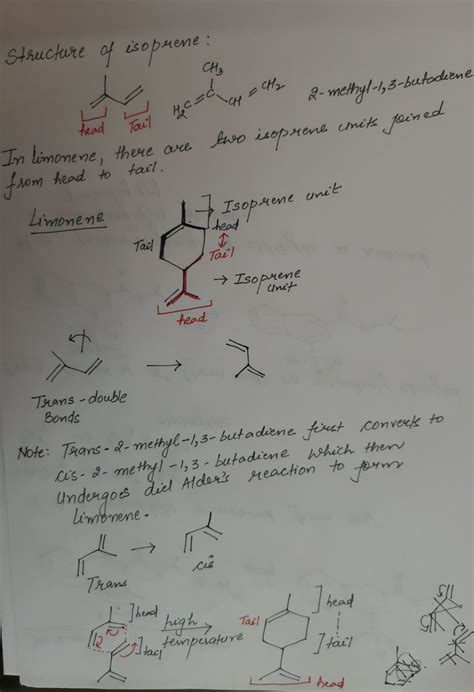 Structure of isoprene:
CH3
H2C C CH CH2 2-methyl-1,3-butadiene
head Tail
In limonene, there are two isoprene units joined
from head to tail.
Limonene
Isoprene unit
Tail head
Tail
Isoprene
unit
head
Trans-double
Bonds
Note: Trans-2-methyl-1,3-butadiene first converts to
cis-2-methyl-1,3-butadiene which then
Undergoes diel Alder's reaction to form
limonene.
Trans cis
head high temperature Tail head
tail tail
head